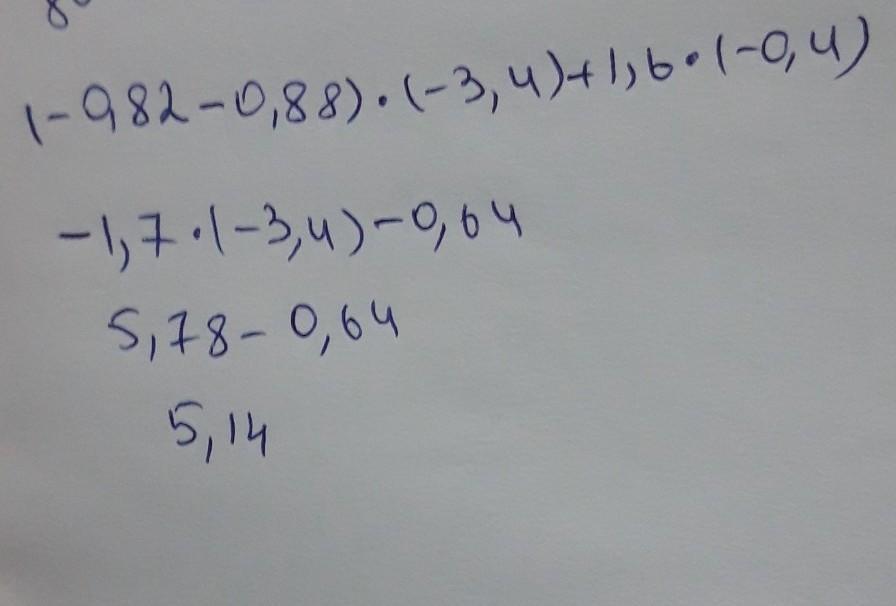 (-0,82-0,88)·(-3,4)+1,6·(-0,4)
-1,7·(-3,4)-0,64
5,78-0,64
5,14